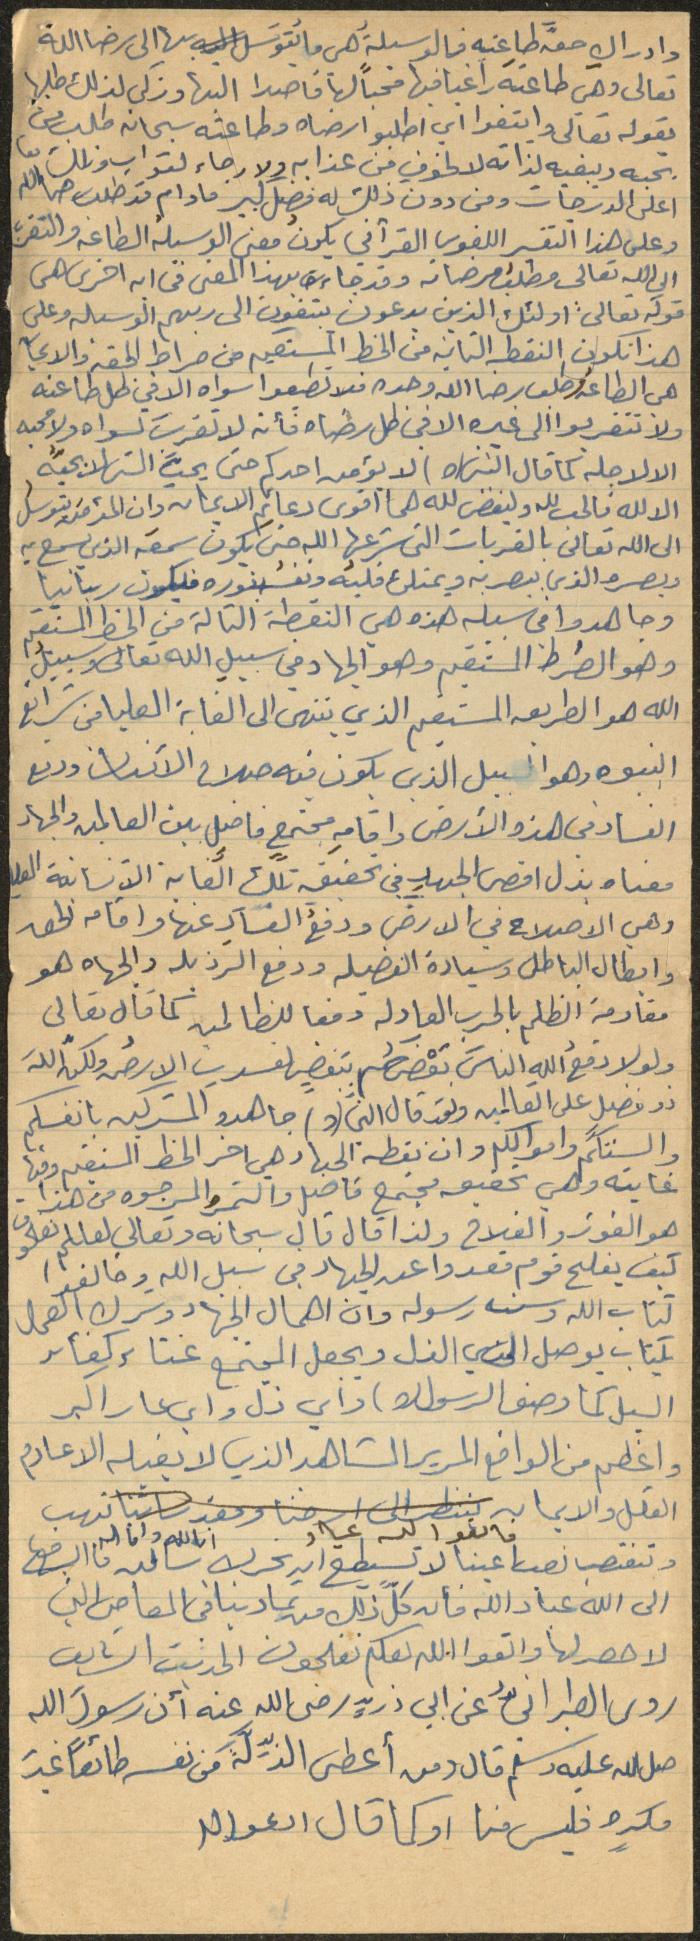 وادراك حقَّ طاعته فالوسيلةُ هي ما يُتوسَل بها الى رضا الله
تعالى وهي طاعته راغبا فيها محباً لها قاصدا اليها وزكى لذلك طلبها
بقوله تعالى وابتغوا اي اطلبوا رضاه وطاعته سبحانه طلب من
يحبه ويبغيه لذاته لا لخوفٍ من عذابه ولا رجاء لثوابه وتلك
اعلى الدرجات ومن دون ذلك له فضل كبير مادام قد طلب رضا الله
وعلى هذا التفسير اللغوي القرآني يكونُ معنى الوسيلة الطاعه والتقرب
الى الله تعالى وطلبُ مرضاته وقد جاءت بهذا المعنى في ايه اخرى هي
قوله تعالى: اولئك الذين يدعون يبتغون الى ربهم الوسيله وعلى
هذا تكون النقطه الثانيه من الخط المستقيم من صراط الحق والايمان
هي الطاعةُ وطلب رضا الله وحده فلا تطيعوا سواه الا في ظل طاعته
ولا تتقربوا الى غيره الا في ظل رضاه فأنه لا تقرب لسواه ولا محبه
الا لاجله كما قال النبي (ص) لا يؤمن احدكم حتى يحبَّ الشيء لا يحبَّه
الا لله فالحب لله والبغض لله هما اقوى دعائم الايمان وان المؤمن يتوسل
الى الله تعالى بالقربات التي شرعها الله حتى يكون سمعه الذي يسمع به
وبصره الذي يبصر به ويمتلئ قلبُه ونفسُه بنوره فيكون ربانيا
وجاهدوا في سبيله هذه هي النقطة الثالثة من الخط المستقيم
وهو الصراط المستقيم وهو الجهاد في سبيل الله تعالى وسبيلُ
الله هو الطريقه المستقيم الذي ينتهي الى الغاية العليا من شرائع
النبوه وهو السبيل الذي يكون فيه صلاح الأنسان ودفع
الفساد في هذه الأرض واقامة مجتمع فاضلٍ بين العالمين والجهاد
معناه بذل اقصى الجهدِ في تحقيق تلك الغاية الإنسانية العليا
وهي الاصلاح في الارض ودفعُ الفسادِ عنها واقامة الحق
وابطال الباطل وسيادة الفضيله ودفع الرذيله والجهاد هو
مقاومة الظلم بالحرب العادله دفعا للظالمين كما قال تعالى
ولولا دفعُ اللهِ الناسَ بعْضَهُم ببعضٍ لفسدت الارضُ ولكنَّ اللهَ
ذو فضلٍ على العالمين ولقد قال النبي (ص) جاهدو المشركين بانفسكم
والسنتكم واموالكم وان نقطه الجهاد هي اخر الخط المستقيم وفيها
غايته وهي تحقيق مجتمع فاضل والثمرُ المرجوه من هذا
هو الفوز والفلاح ولذا قال قال سبحانه وتعالى لعلكم تفلحون
كيف يفلح قوم قعدوا عن الجهاد في سبيل الله وخالفوا
كتاب الله وسنه رسوله وان اهمال الجهاد وترك العمل
بكتاب يوصل الى الذل ويجعل المجتمع غثاء كغثاء
السيل كما وصف الرسول (ص) وأي ذل واي عار اكبر
واعظم من الواقع المرير المشاهد الذي لا يقبله الا عادم
العقل والايمان ننظر الى ارضنا ومقدساتنا تنهب
فاتقوا الله عباد انا لله وانا اليه
وتغتصب نصب اعيننا لا نستطيع ان نحرك ساكن فالرجوع
الى الله عباد الله فأن كلَّ ذلك من تمادينا في المعاصي التي
لا حصر لها واتقوا الله لعلكم تفلحون الحديث الشريف
روى الطبراني عن ابي ذرٍ رضي الله عنه أن رسول الله
صلى الله عليه وسلم قال ومن أعطى الذِلَّةَ من نفسه طائعاً غيرَ
مكرهٍ فليس منا او كما قال ادعوا الله